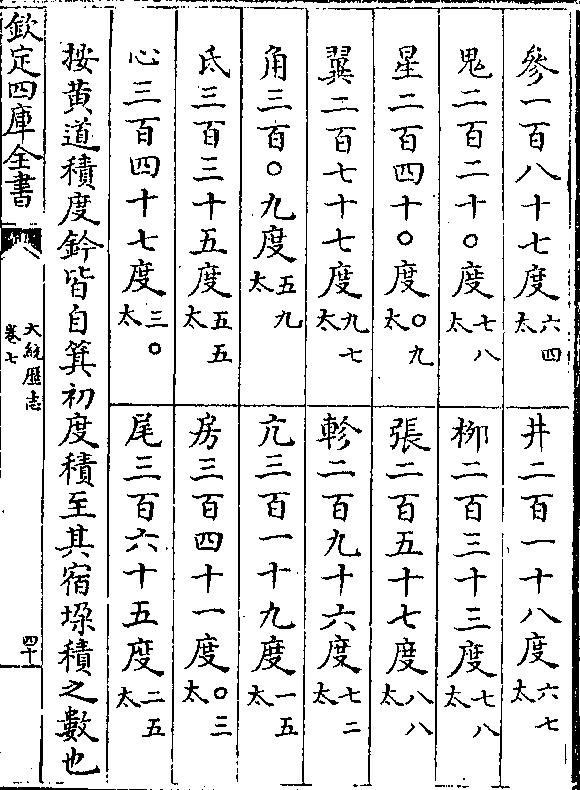 參一百八十七度六四太　井二百一十八度六七太
鬼二百二十〇度七八太　柳二百三十三度七八太
星二百四十〇度〇九太　張二百五十七度八八太
翼二百七十七度九七太　軫二百九十六度七二太
角三百〇九度五九太　亢三百一十九度一五太
氐三百三十五度五五太　房三百四十一度〇三太
心三百四十七度三〇太　尾三百六十五度二五太
按黃道積度鈐皆自箕初度積至其宿垜積之數也
欽定四庫全書
大統歷志
卷七
四十